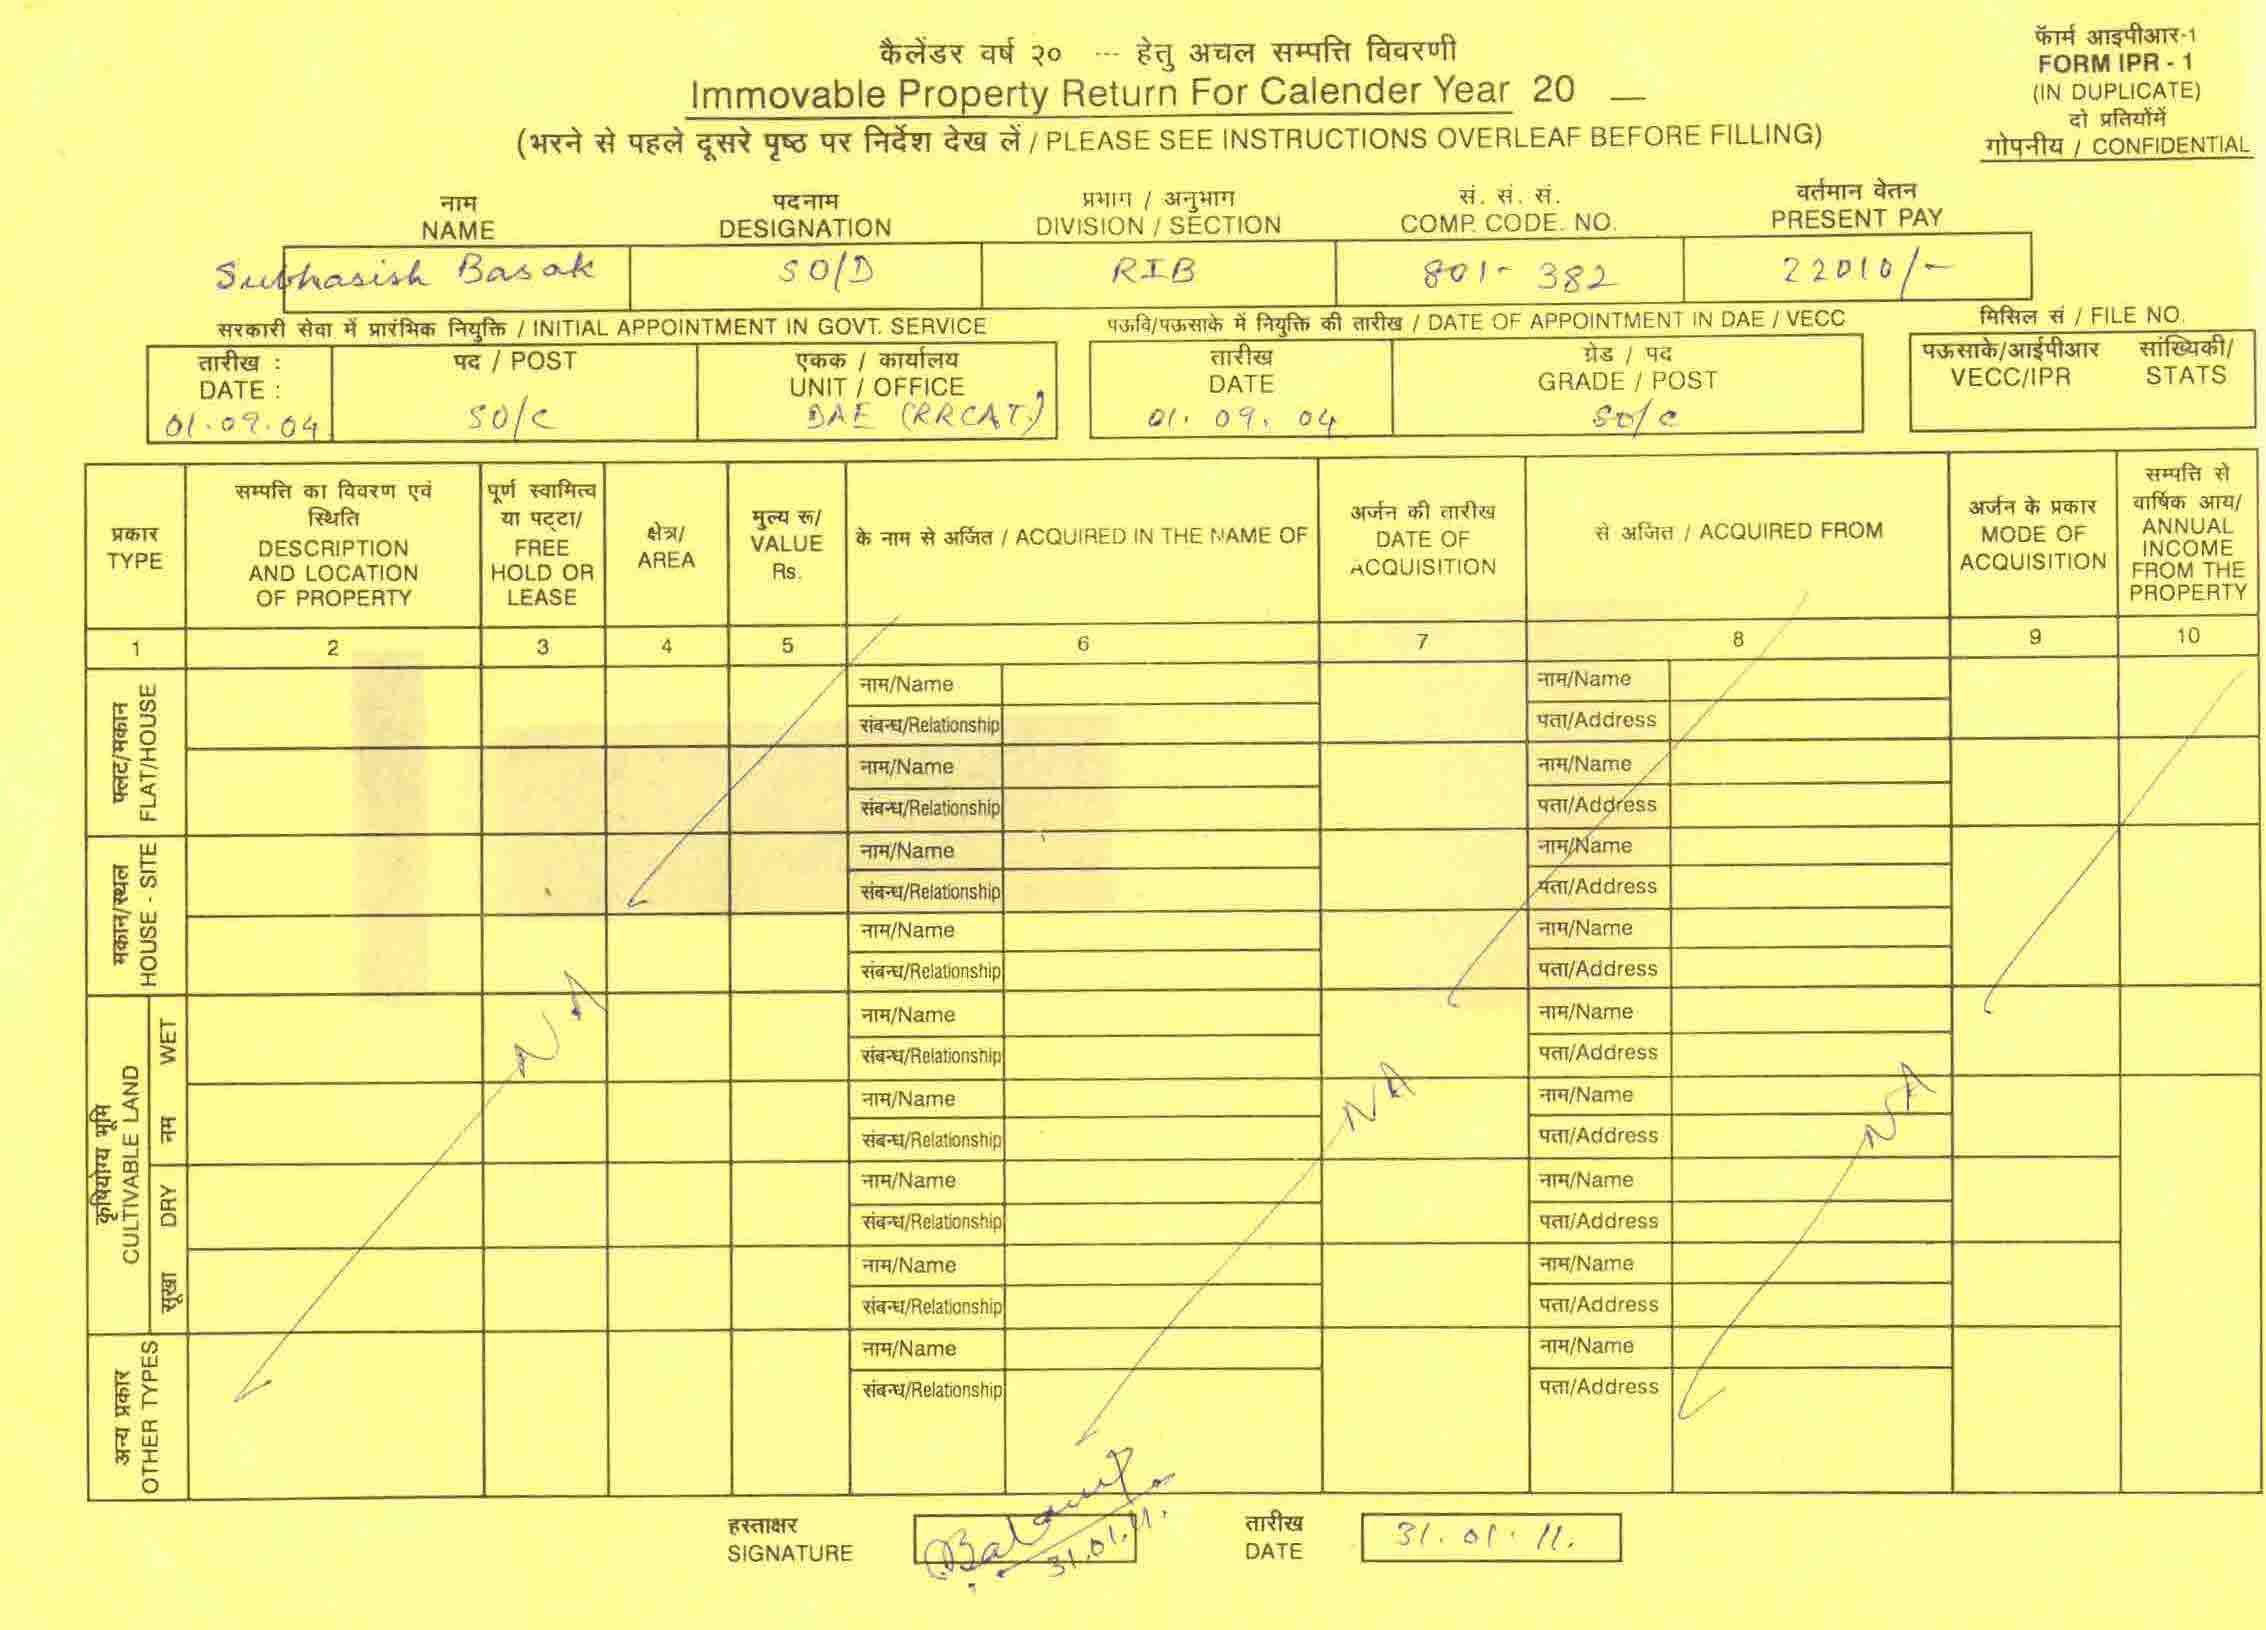 कैलेंडर वर्ष २० --- हेतु अचल सम्पत्ति विवरणी
Immovable Property Return For Calender Year 20 __
(भरने से पहले दूसरे पृष्ठ पर निर्देश देख लें / PLEASE SEE INSTRUCTIONS OVERLEAF BEFORE FILLING)
फॅार्म आइपीआर-1
FORM IPR - 1
(IN DUPLICATE)
दो प्रतियोंमें
गोपनीय / CONFIDENTIAL
नाम पदनाम प्रभाग / अनुभाग सं. सं. सं. वर्तमान वेतन
NAME DESIGNATION DIVISION / SECTION COMP. CODE. NO. PRESENT PAY
Subhasish Basak SO/D RIB 801-382 22010/-
सरकारी सेवा में प्रारंभिक नियुक्ति / INITIAL APPOINTMENT IN GOVT. SERVICE पऊवि/पऊसाके में नियुक्ति की तारीख / DATE OF APPOINTMENT IN DAE / VECC मिसिल सं / FILE NO.
तारीख : पद / POST एकक / कार्यालय तारीख ग्रेड / पद पऊसाके/आईपीआर सांख्यिकी/
DATE : UNIT / OFFICE DATE GRADE / POST VECC/IPR STATS
01.09.04 SO/C DAE (RRCAT) 01.09.04 SO/C
प्रकार
TYPE
सम्पत्ति का विवरण एवं
स्थिति
DESCRIPTION
AND LOCATION
OF PROPERTY
पूर्ण स्वामित्व
या पट्टा/
FREE
HOLD OR
LEASE
क्षेत्र/
AREA
मुल्य रू/
VALUE
Rs.
के नाम से अर्जित / ACQUIRED IN THE NAME OF
अर्जन की तारीख
DATE OF
ACQUISITION
से अर्जित / ACQUIRED FROM
अर्जन के प्रकार
MODE OF
ACQUISITION
सम्पत्ति से
वार्षिक आय/
ANNUAL
INCOME
FROM THE
PROPERTY
1 2 3 4 5 6 7 8 9 10
फ्लट/मकान
FLAT/HOUSE
नाम/Name नाम/Name
संबन्ध/Relationship पता/Address
नाम/Name नाम/Name
संबन्ध/Relationship पता/Address
मकान/स्थल
HOUSE - SITE
नाम/Name नाम/Name
संबन्ध/Relationship पता/Address
नाम/Name नाम/Name
संबन्ध/Relationship पता/Address
कृषियोग्य भूमि
CULTIVABLE LAND
नम WET
NA
नाम/Name नाम/Name
संबन्ध/Relationship पता/Address
NA NA
नाम/Name नाम/Name
संबन्ध/Relationship पता/Address
सूखा DRY
नाम/Name नाम/Name
संबन्ध/Relationship पता/Address
नाम/Name नाम/Name
संबन्ध/Relationship पता/Address
अन्य प्रकार
OTHER TYPES
नाम/Name नाम/Name
संबन्ध/Relationship पता/Address
हस्ताक्षर तारीख
SIGNATURE 31.01.11. DATE 31.01.11.